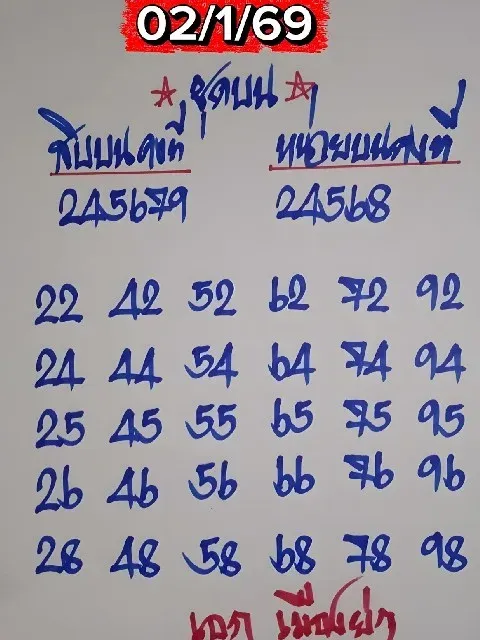 02/1/69
ชุดบน
สิบบนคงที่ หน่วยบนคงที่
245679 24568
22 42 52 62 72 92
24 44 54 64 74 94
25 45 55 65 75 95
26 46 56 66 76 96
28 48 58 68 78 98